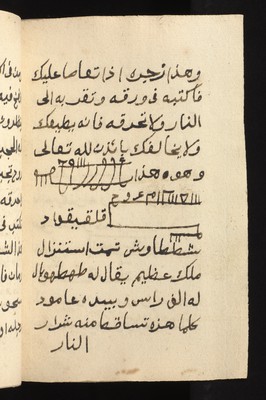 وهذا زجرك اذا تعاصا عليك
فاكتبه فى ورقه وتقربه الى
النار ولا تحرقه فانه يطيعك
ولا يخالفك باذن الله تعالى
وهو هذا
قلقيقود
شططاوش تمت استنزال
ملك عظيم يقال له طهطهوال
له الف راس وبيده عامود
كلما هزه تساقط منه شرار
النار